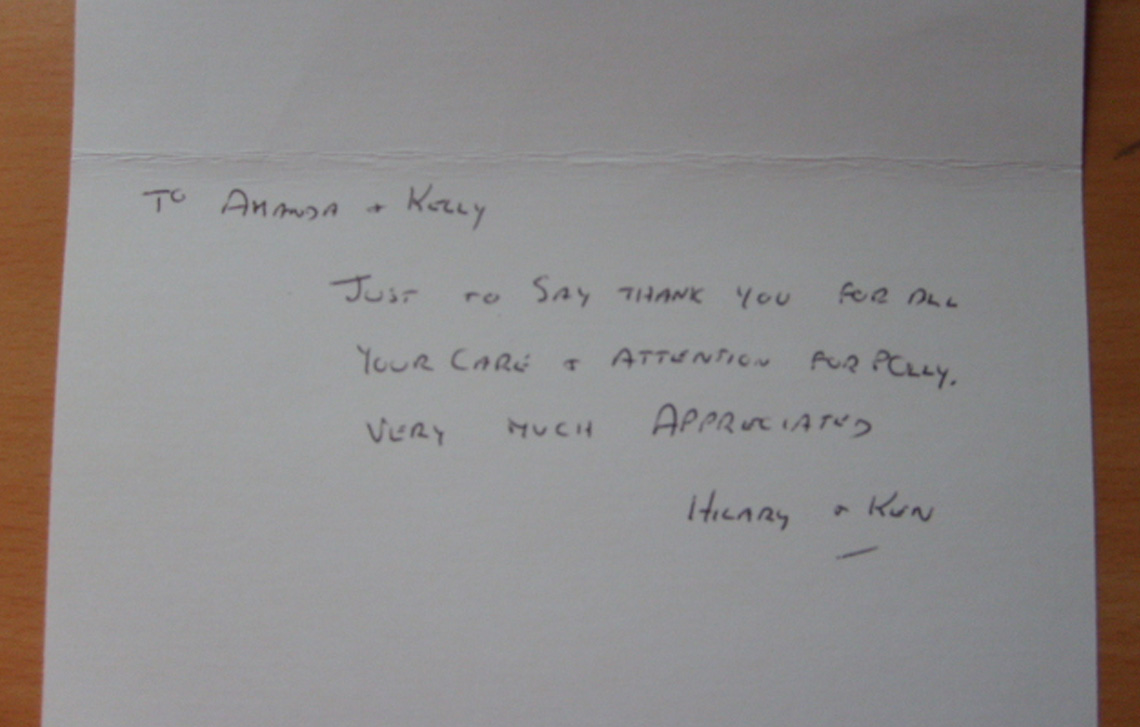 To Amanda + Kelly
Just to say thank you for all
your care + attention for Polly.
Very much appreciated
Hilary + Ken